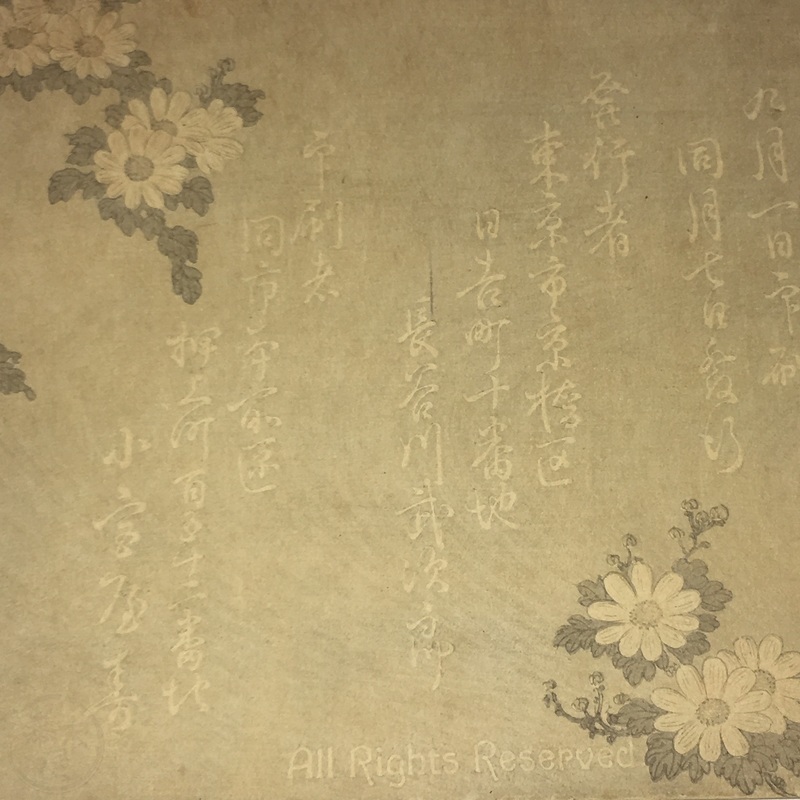 九月一日印刷
同月七日発行
発行者
東京市京橋区
日吉町十番地
長谷川武次郎
印刷者
同市本所区
押上町百五十二番地
小宮屋寿
All Rights Reserved